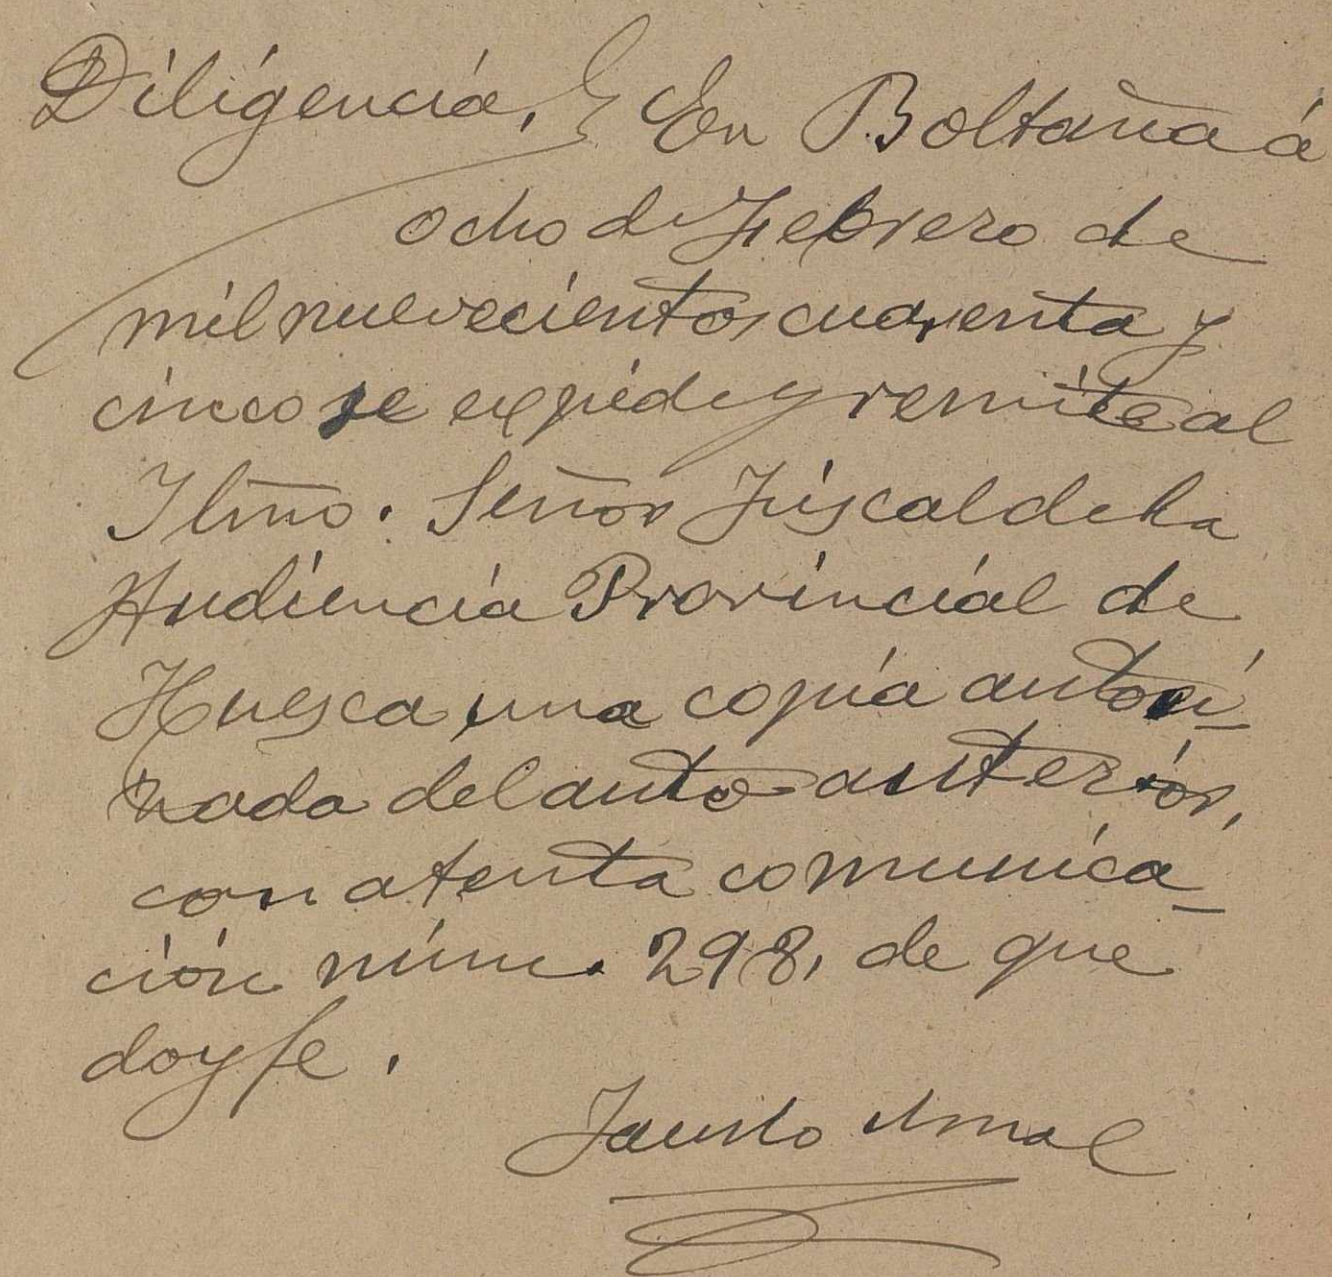 Diligencia, En Boltaña á
ocho de Febrero de
mil nuevecientos cuarenta y
cinco se expide y remite al
Ilmo. Señor Fiscal de la
Audiencia Provincial de
Huesca, una copia autori-
zada del auto anterior,
con atenta comunica-
ción núm. 298, de que
doy fe.
Fausto